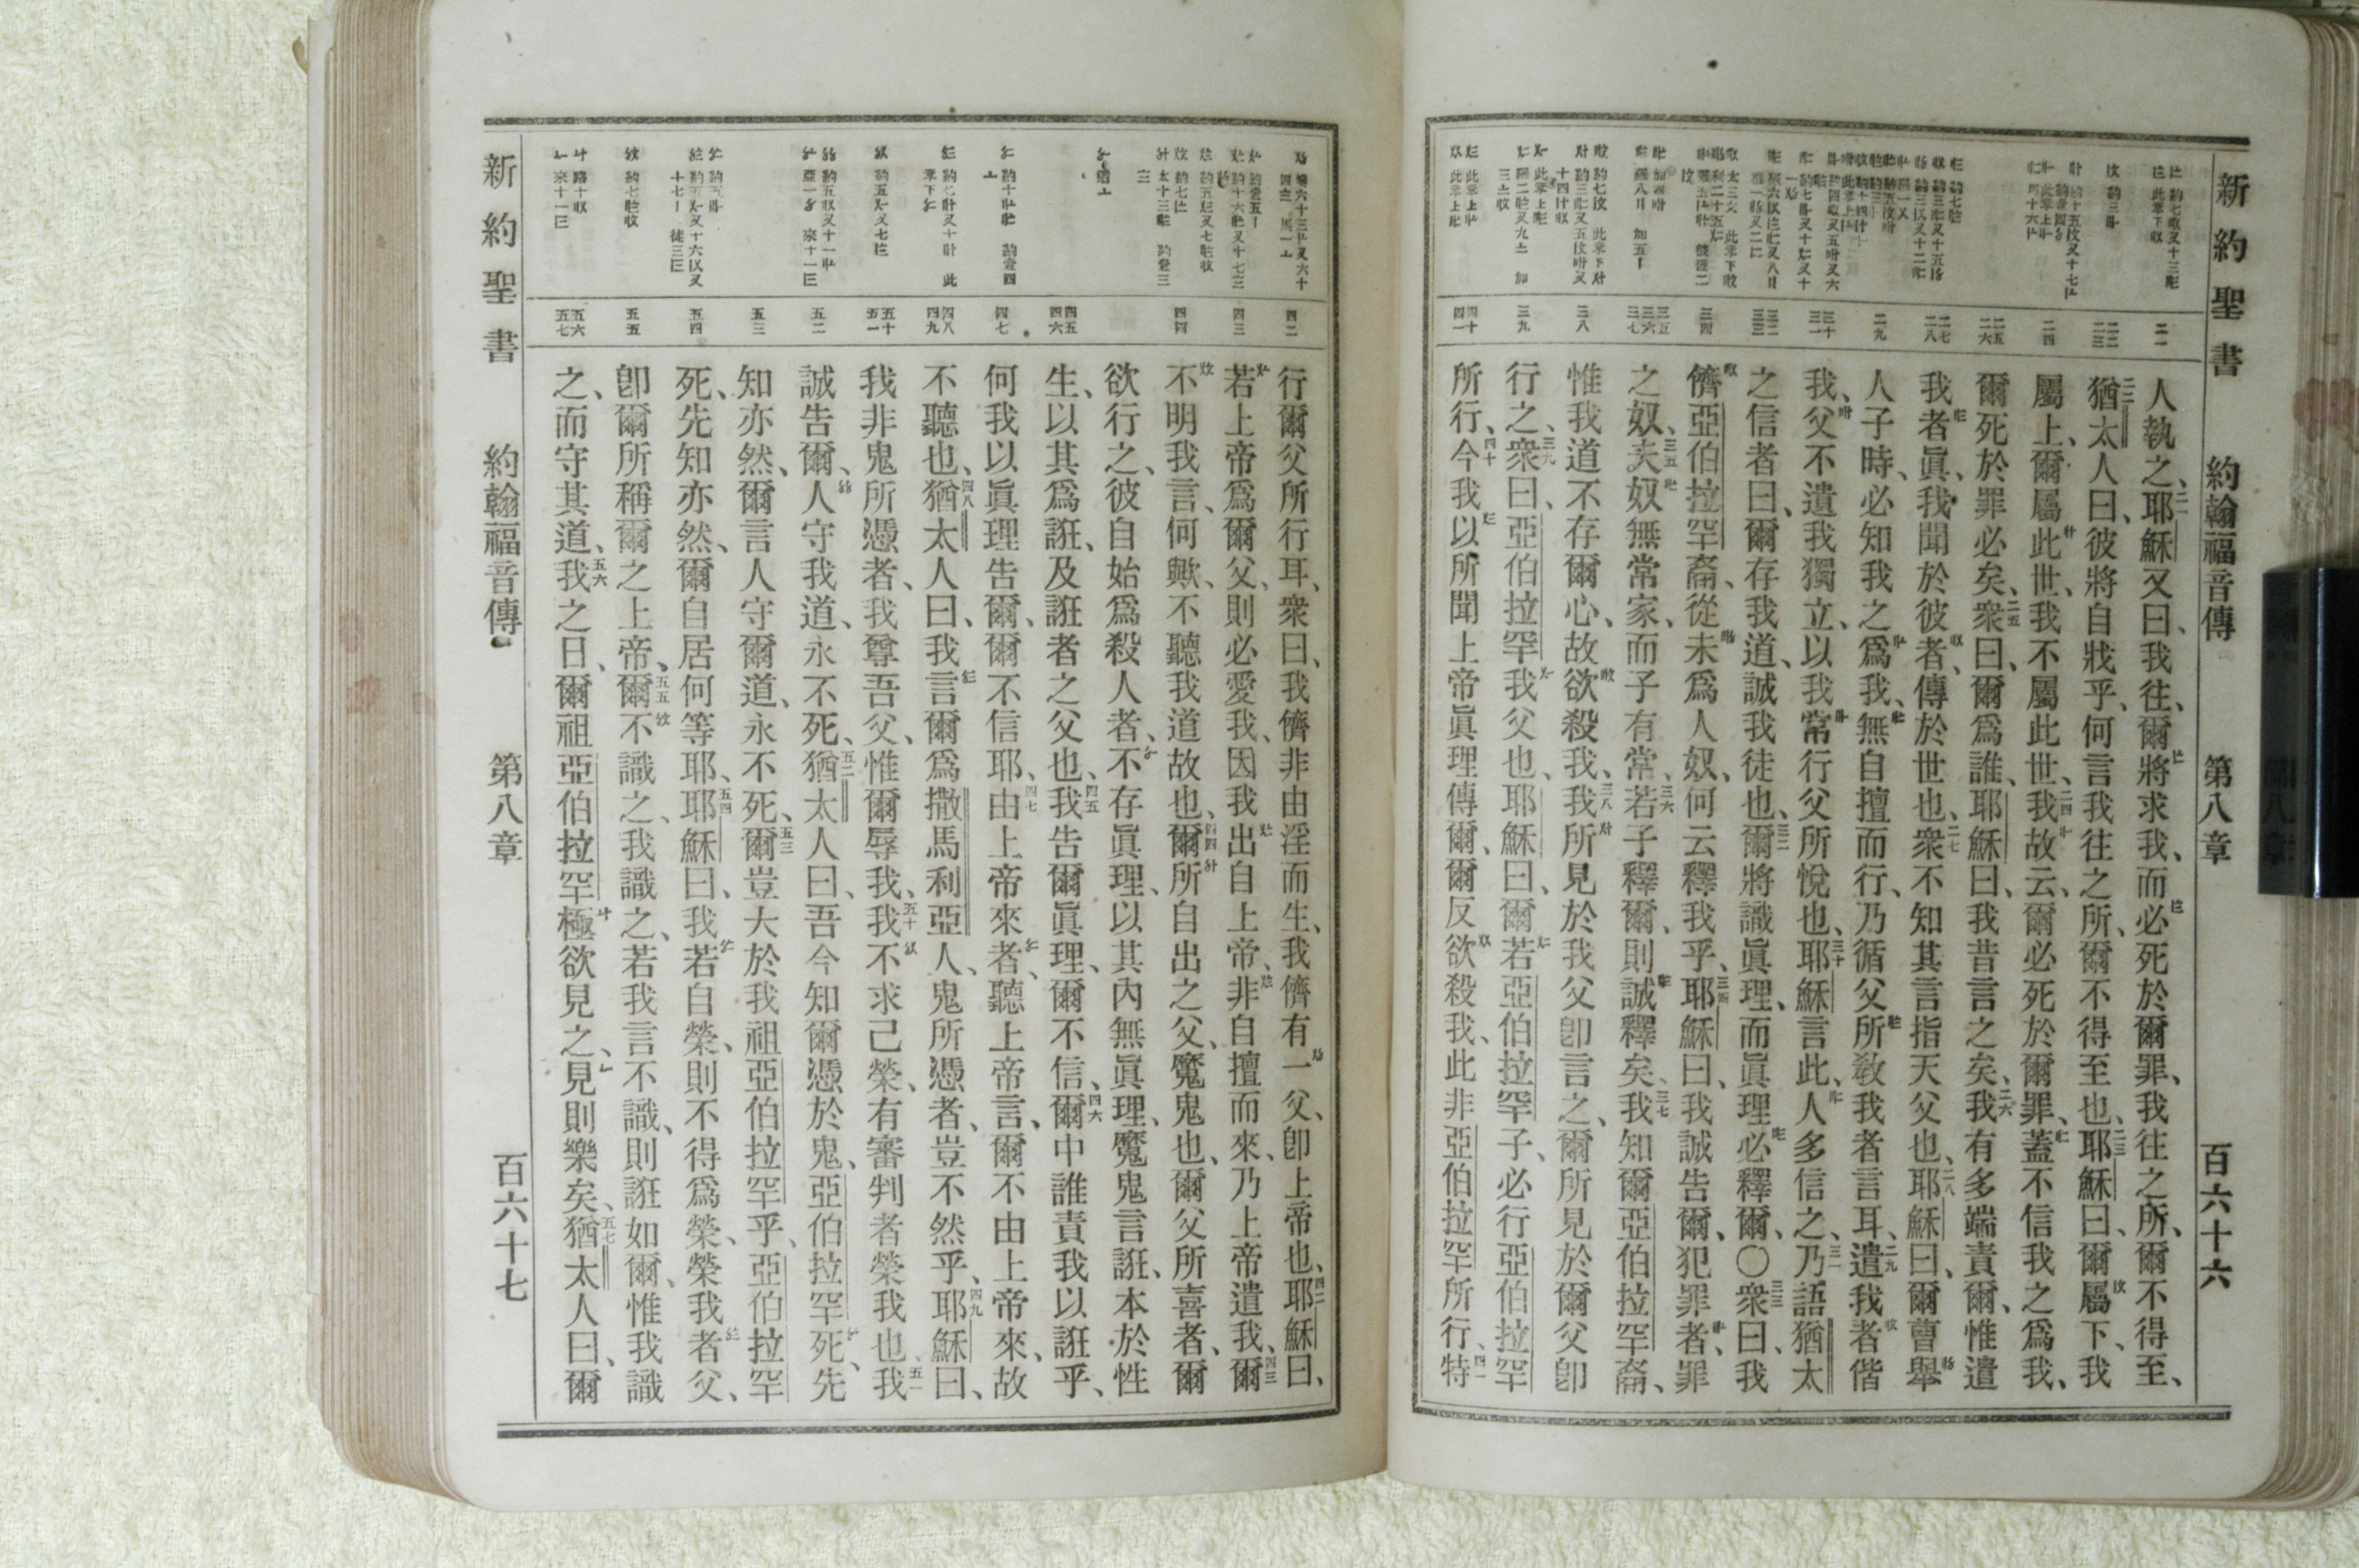 新約聖書 約翰福音傳 第八章 百六十六
人執之、二一耶穌又曰、我往、爾將求我、而必死於爾罪、我往之所、爾不得至、
二二猶太人曰、彼將自戕乎、何言我往之所、爾不得至也、二三耶穌曰、爾屬下、我
屬上、爾屬此世、我不屬此世、二四我故云、爾必死於爾罪、蓋不信我之爲我、
爾死於罪必矣、二五衆曰、爾爲誰、耶穌曰、我昔言之矣、二六我有多端責爾、惟遣
我者眞、我聞於彼者、傳於世也、二七衆不知其言指天父也、二八耶穌曰、爾曹舉
人子時、必知我之爲我、無自擅而行、乃循父所敎我者言耳、二九遣我者偕
我、父不遺我獨立、以我常行父所悅也、三十耶穌言此、人多信之、三一乃語猶太
之信者曰、爾存我道、誠我徒也、三二爾將識眞理、而眞理必釋爾、〇三三衆曰、我
儕亞伯拉罕裔、從未爲人奴、何云釋我乎、三四耶穌曰、我誠告爾、犯罪者、罪
之奴、三五夫奴無常家、而子有常、三六若子釋爾、則誠釋矣、三七我知爾亞伯拉罕裔、
惟我道不存爾心、故欲殺我、三八我所見於我父卽言之、爾所見於爾父卽
行之、三九衆曰、亞伯拉罕我父也、耶穌曰、爾若亞伯拉罕子、必行亞伯拉罕
所行、四十今我以所聞上帝眞理傳爾、爾反欲殺我、此非亞伯拉罕所行、四一特
二一
二二 二三
二四
二五 二六
二七 二八
二九
三十 三一
三二 三三
三四
三五 三六 三七
三八
三九
四十 四一
行爾父所行耳、衆曰、我儕非由淫而生、我儕有一父、卽上帝也、四二耶穌曰、
若上帝爲爾父、則必愛我、因我出自上帝、非自擅而來、乃上帝遣我、四三爾
不明我言、何歟、不聽我道故也、四四爾所自出之父、魔鬼也、爾父所喜者、爾
欲行之、彼自始爲殺人者、不存眞理、以其內無眞理、魔鬼言誑、本於性
生、以其爲誑、及誑者之父也、四五我告爾眞理、爾不信、四六爾中誰責我以誑乎、
何我以眞理告爾、爾不信耶、四七由上帝來者、聽上帝言、爾不由上帝來、故
不聽也、四八猶太人曰、我言爾爲撒馬利亞人、鬼所憑者、豈不然乎、四九耶穌曰、
我非鬼所憑者、我尊吾父、惟爾辱我、五十我不求己榮、有審判者榮我也、五一我
誠告爾、人守我道、永不死、五二猶太人曰、吾今知爾憑於鬼、亞伯拉罕死、先
知亦然、爾言人守爾道、永不死、五三爾豈大於我祖亞伯拉罕乎、亞伯拉罕
死、先知亦然、爾自居何等耶、五四耶穌曰、我若自榮、則不得爲榮、榮我者父、
卽爾所稱爾之上帝、五五爾不識之、我識之、若我言不識、則誑如爾、惟我識
之、而守其道、五六我之日、爾祖亞伯拉罕極欲見之、見則樂矣、五七猶太人曰、爾
四二
四三
四四
四五 四六
四七
四八 四九
五十 五一
五二
五三
五四
五五
五六 五七
新約聖書 約翰福音傳 第八章 百六十七